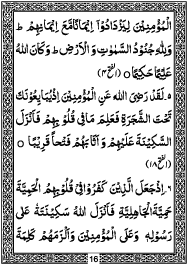 الْمُؤْمِنِيْنَ لِيَزْدَادُوْآ اِيْمَانًا مَّعَ اِيْمَانِهِمْ ط
وَلِلّٰهِ جُنُوْدُ السَّمٰوٰتِ وَالْاَرْضِ ط وَكَانَ اللّٰهُ
عَلِيْمًا حَكِيْمًا ۝ (الفتح ۴)
۵۔ لَقَدْ رَضِىَ اللّٰهُ عَنِ الْمُؤْمِنِيْنَ اِذْ يُبَايِعُوْنَكَ
تَحْتَ الشَّجَرَةِ فَعَلِمَ مَا فِىْ قُلُوْبِهِمْ فَاَنْزَلَ
السَّكِيْنَةَ عَلَيْهِمْ وَاَثَابَهُمْ فَتْحًا قَرِيْبًا ۝
(الفتح ۱۸)
۶۔ اِذْ جَعَلَ الَّذِيْنَ كَفَرُوْا فِىْ قُلُوْبِهِمُ الْحَمِيَّةَ
حَمِيَّةَ الْجَاهِلِيَّةِ فَاَنْزَلَ اللّٰهُ سَكِيْنَتَهٗ عَلٰى
رَسُوْلِهٖ وَعَلَى الْمُؤْمِنِيْنَ وَاَلْزَمَهُمْ كَلِمَةَ
16